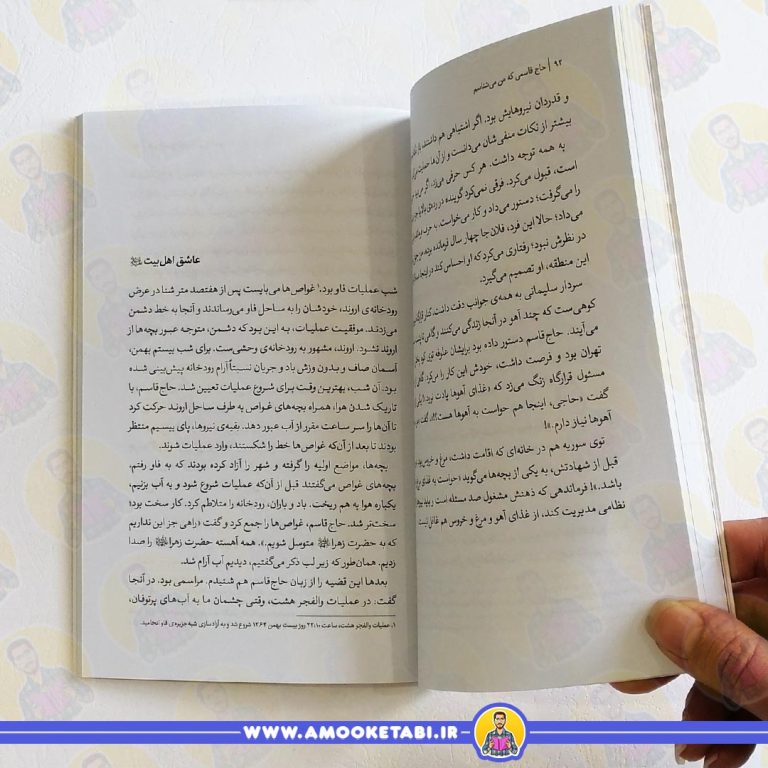 ۹۲ | حاج قاسمی که من می‌شناسم
و قدردان نیروهایش بود. اگر اشتباهی هم داشتند،
بیشتر از نکات منفی‌شان می‌دانست و از آن‌ها حمایت
به همه توجه داشت. هر کس حرفی می‌زد، اگر
است، قبول می‌کرد. فرقی نمی‌کرد گوینده در رده‌ی بالا
را می‌گرفت؛ دستور می‌داد و کار می‌خواست. به حرف
می‌داد؛ حالا این فرد، فلان‌جا چهار سال فرمانده بوده،
در نظرش نبود؛ رفتاری می‌کرد که او احساس کند در اینجا
این منطقه، او تصمیم می‌گیرد.
سردار سلیمانی به همه‌ی جوانب دقت داشت. کنار
کوهی‌ست که چند آهو در آنجا زندگی می‌کنند و گاهی
می‌آیند. حاج‌قاسم دستور داده بود برایشان علوفه توی کوه
تهران بود و فرصت داشت، خودش این کار را می‌کرد. گاهی
مسئول قرارگاه زنگ می‌زد که «غذای آهوها یادت نرود!»
گفت «حاجی، اینجا هم حواست به آهوها هست؟!» گفت
آهوها نیاز دارم.»!
توی سوریه هم در خانه‌ای که اقامت داشت، مرغ و خروس
قبل از شهادتش، به یکی از بچه‌ها می‌گوید «حواست به غذای
باشد.»! فرماندهی که ذهنش مشغول صد مسئله است و باید
نظامی مدیریت کند، از غذای آهو و مرغ و خروس هم غافل نیست.
عاشق اهل‌بیت
شب عملیات فاو بود.¹ غواص‌ها می‌بایست پس از هفتصد متر شنا در عرض
رودخانه‌ی اروند، خودشان را به ساحل فاو می‌رساندند و آنجا به خط دشمن
می‌زدند. موفقیت عملیات، به این بود که دشمن، متوجه عبور بچه‌ها از
اروند نشود. اروند، مشهور به رودخانه‌ی وحشی‌ست. برای شب بیستم بهمن،
آسمان صاف و بدون وزش باد و جریان نسبتاً آرام رودخانه پیش‌بینی شده
بود. آن شب، بهترین وقت برای شروع عملیات تعیین شد. حاج قاسم، با
تاریک شدن هوا، همراه بچه‌های غواص به طرف ساحل اروند حرکت کرد
تا آن‌ها را سر ساعت مقرر از آب عبور دهد. بقیه‌ی نیروها، پای بیسیم منتظر
بودند تا بعد از آن‌که غواص‌ها خط را شکستند، وارد عملیات شوند.
بچه‌ها، مواضع اولیه را گرفته و شهر را آزاد کرده بودند که به فاو رفتم.
بچه‌های غواص می‌گفتند قبل از آن‌که عملیات شروع شود و به آب بزنیم،
یکباره هوا به هم ریخت. باد و باران، رودخانه را متلاطم کرد. کار سخت بود؛
سخت‌تر شد. حاج قاسم، غواص‌ها را جمع کرد و گفت «راهی جز این نداریم
که به حضرت زهرا متوسل شویم.». همه آهسته حضرت زهرا را صدا
زدیم. همان‌طور که زیر لب ذکر می‌گفتیم، دیدیم آب آرام شد.
بعدها این قضیه را از زبان حاج‌قاسم هم شنیدم. مراسمی بود. در آنجا
گفت: در عملیات والفجر هشت، وقتی چشمان ما به آب‌های پرتوفان،
۱. عملیات والفجر هشت، ساعت ۲۲:۱۰ روز بیست بهمن ۱۳۶۴ شروع شد و به آزادسازی شبه‌جزیره‌ی فاو انجامید.
WWW.AMOOKETABI.IR